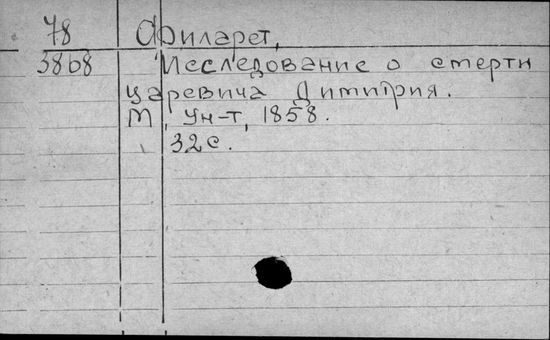 78
Филарет,
3868
Исследование о смерти
царевича Димитрия.
М, Ун-т, 1858.
32с.